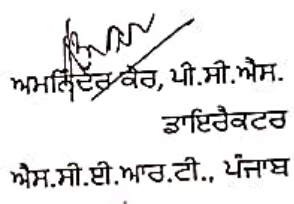 ਅਮਨਿੰਦਰ ਕੌਰ, ਪੀ.ਸੀ.ਐਸ.
ਡਾਇਰੈਕਟਰ
ਐਸ.ਸੀ.ਈ.ਆਰ.ਟੀ., ਪੰਜਾਬ